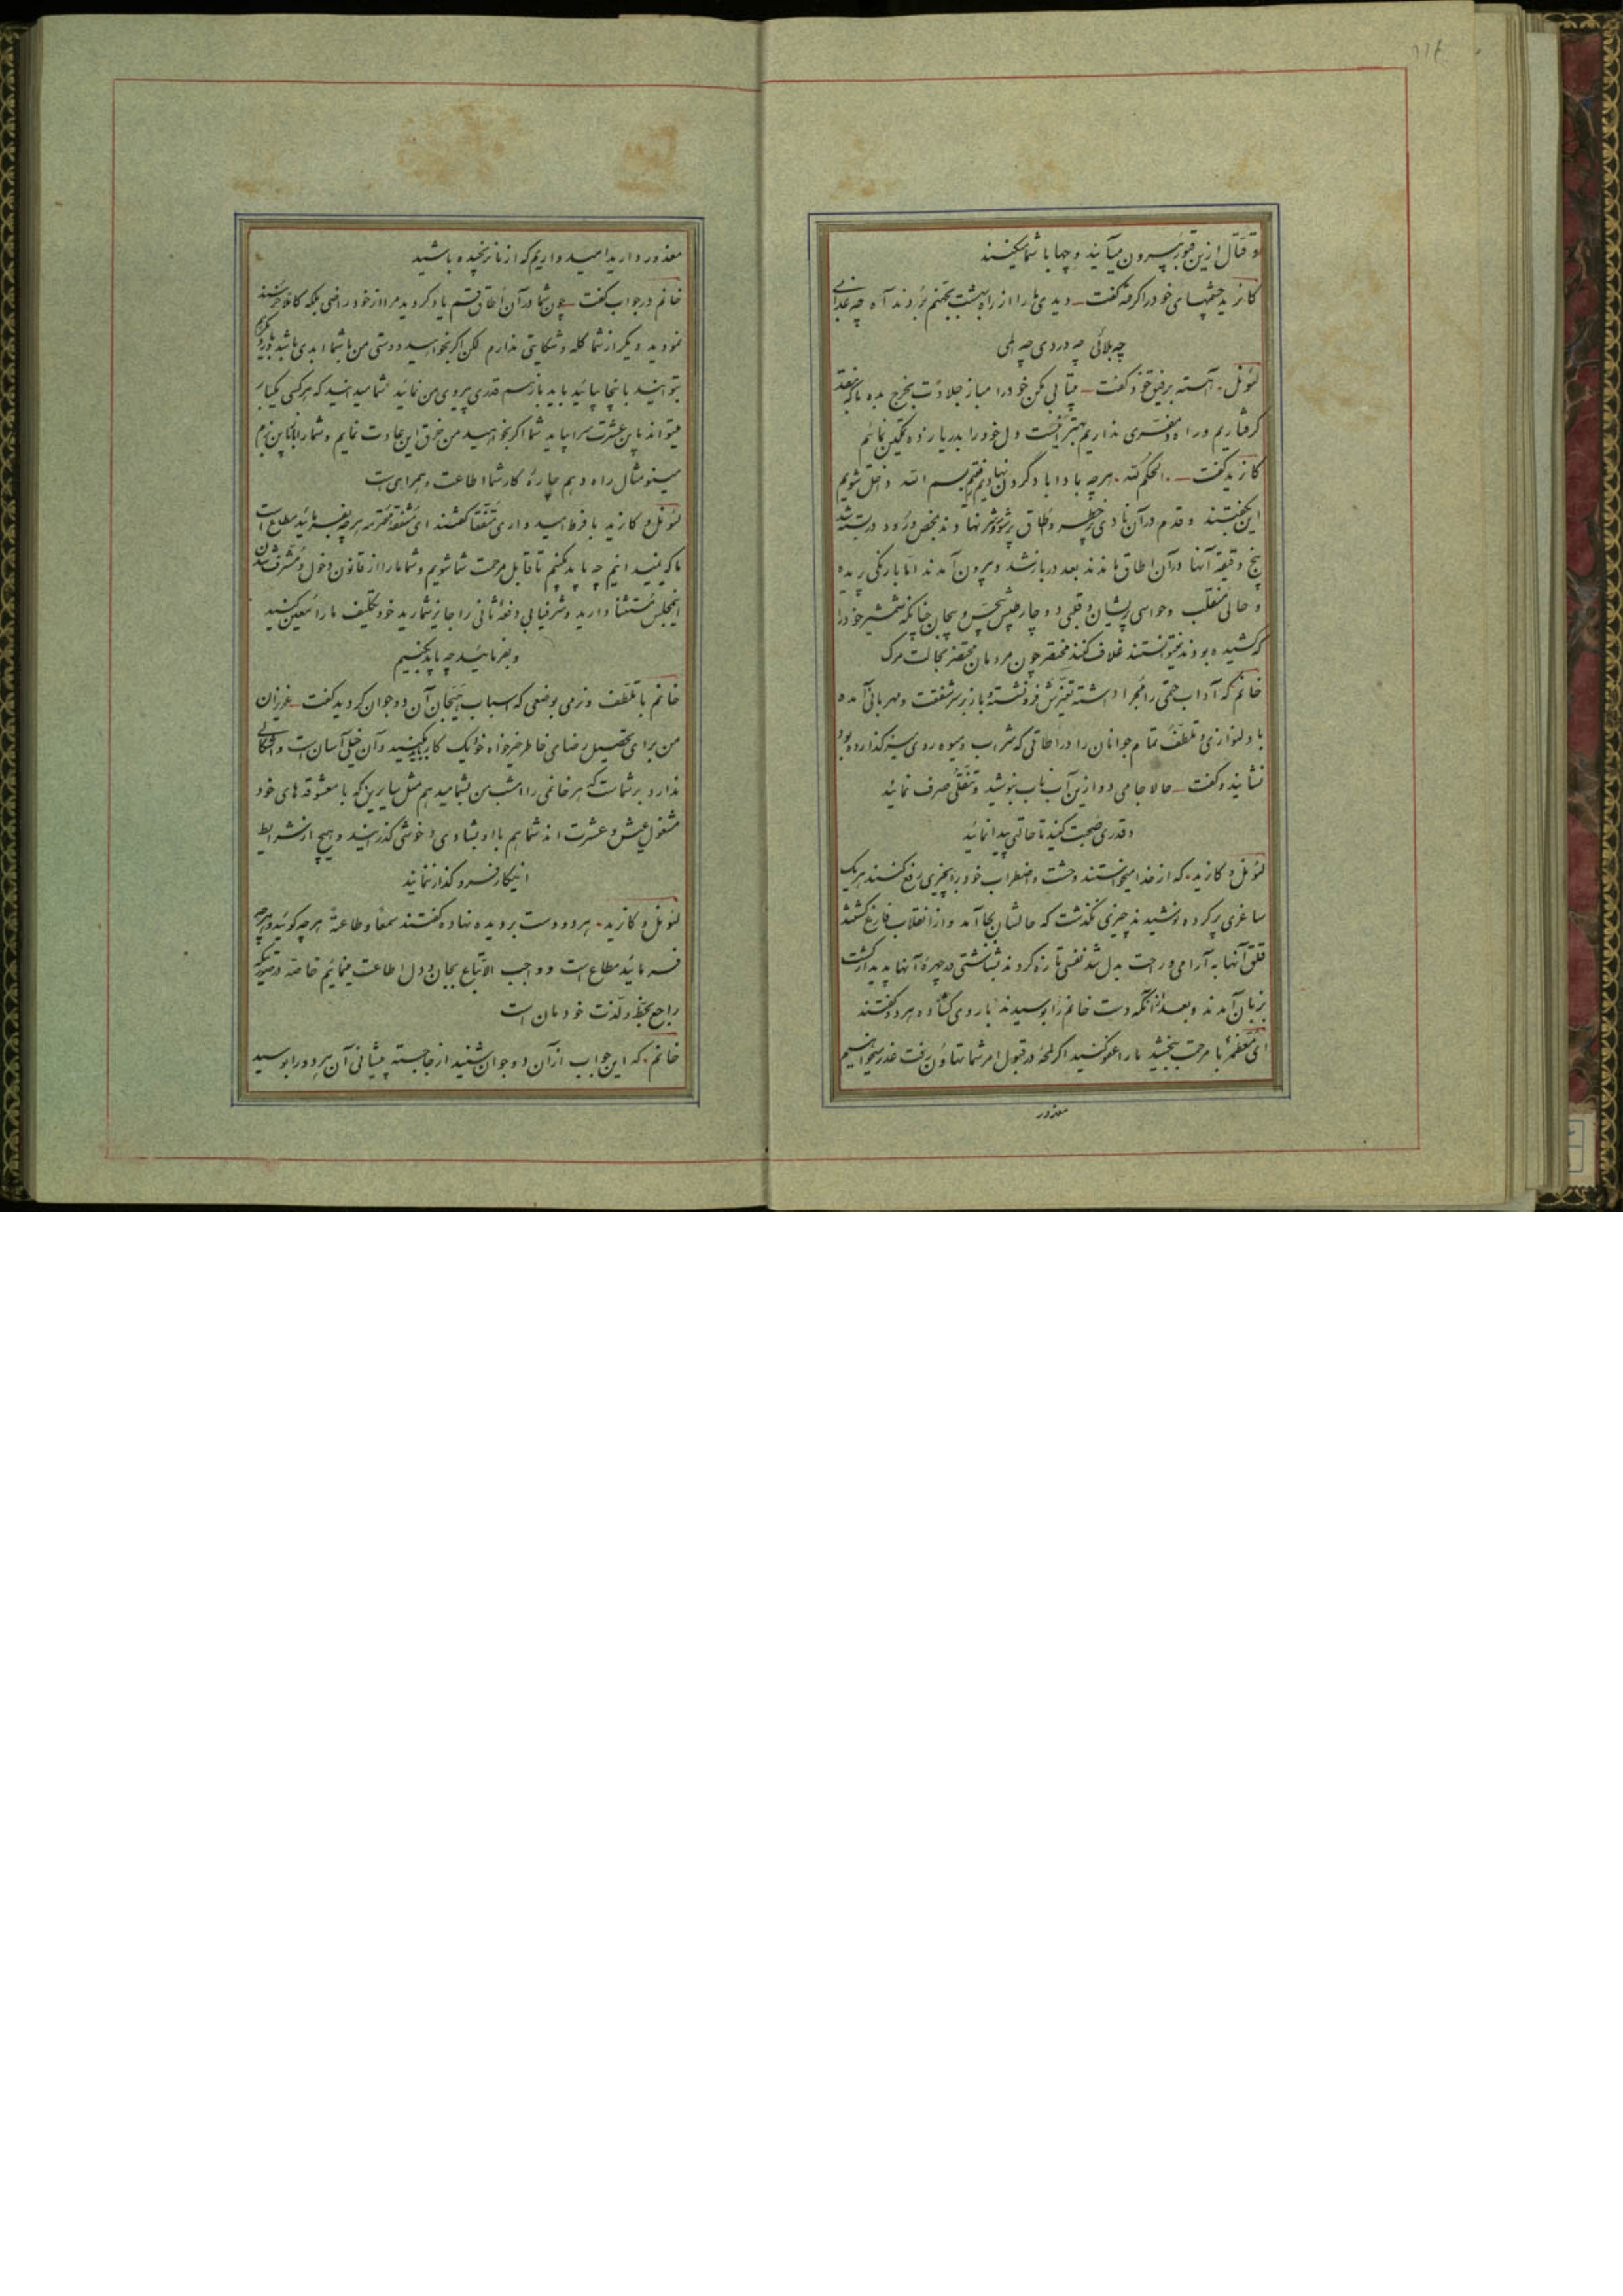 و قتال ازین قبور بیرون میآیند و چها با شما میکنند
کازید چشمهای خود را گرفته گفت دیدی ما را از راه بهشت بجهنم بردند آه چه عذابی
چه بلائی چه دردی چه المی
لئونل آهسته برفیق خود گفت بیتابی مکن خود را مباز جلادت بخرج بده ما که
گرفتاریم و راه مفری نداریم بهتر اینست دل خود را بدریا زده تمکین نمائیم
کازید گفت الحکم لله هرچه بادا باد گردن نهادیم بسم الله داخل شویم
این بگفتند و قدم در آن وادی پرخطر و اطاق پرشور و شر نهادند بمحض ورود در بسته شد
پنج دقیقه آنها در آن اطاق ماندند بعد در باز شد و بیرون آمدند اما با رنگی پریده
و حالی منقلب و حواسی پریشان و قلبی دوچار طپش بیحس و بیجان چنانکه شمشیر خود را
که کشیده بودند نمیتوانستند غلاف کنند مختصر چون مردمان محتضر بحالت مرگ
خانم که آداب حتمی را مجرا داشته تغیرش فرو نشسته باز بر سر شفقت و مهربانی آمده
با دلنوازی و تلطف تمام جوانان را در اطاقی که شراب و میوه روی میز گذارده بود
نشانید و گفت حالا جامی دو ازین آب ناب بنوشید و تنقلی صرف نمائید
و قدری صحبت کنید تا حالتی پیدا نمائید
لئونل و کازید که از خدا میخواستند وحشت و اضطراب خود را بچیزی رفع کنند هر یک
ساغری پر کرده نوشیدند چیزی نگذشت که حالشان بجا آمد و از انقلاب فارغ گشتند
قلق آنها به آرامی و راحت بدل شد نفسی تازه کردند بشاشتی در چهره آنها پدیدار گشت
بزبان آمدند و بعد از آنکه دست خانم را بوسیدند با روی گشاده هر دو گفتند
ای معظمه با مرحمت ببخشید ما را عفو کنید اگر لمحه در قبول امر شما تهاون رفت عذر میخواهیم
معذور
معذور دارید امید واریم که از ما نرنجیده باشید
خانم در جواب گفت چون شما در آن اطاق قسم یاد کردید مرا از خود راضی بلکه کاملا خرسند
نمودید دیگر از شما گله و شکایتی ندارم لکن اگر بخواهید دوستی من با شما ابدی باشد
بتوانید باینجا بیائید باید باز هم قدری پیروی من نمائید شما میدانید که هر کسی یکبار
میتواند باین عشرت سرا بیاید شما اگر بخواهید من خرق این عادت نمایم و شما را باین بزم
مینو مثال راه دهم چاره کار شما اطاعت و همراهی است
لئونل و کازید با فرط امید واری متفقا گفتند ای مشفقه محترمه هرچه بفرمائید مطاع است
ما که نمیدانیم چه باید بکنیم تا قابل مرحمت شما شویم و شما ما را از قانون دخول و مشرف شدن
اینمجلس مستثنا دارید و شرفیابی دفعه ثانی را جایز شمارید خود تکلیف ما را معین کنید
و بفرمائید چه باید بکنیم
خانم با تلطف و نرمی بوضعی که اسباب هیجان آن دو جوان گردید گفت عزیزان
من برای تحصیل رضای خاطر خیرخواه خود یک کار بکنید و آن خیلی آسان است و اشکالی
ندارد بر شماست که هر خانمی را امشب من بشما میدهم مثل سایرین که با معشوقه های خود
مشغول عیش و عشرت اند شما هم با او بشادی و خوشی گذرانید و هیچ از شرایط
اینکار فرو گذار ننمائید
لئونل و کازید هر دو دست بر دیده نهاده گفتند سمعا و طاعة هرچه گوئید و هرچه
فرمائید مطاع است و واجب الاتباع بجان و دل اطاعت مینمائیم خاصه در صورتیکه
راجع بحظ و لذت خودمان است
خانم که این جواب از آن دو جوان شنید از جا جسته پیشانی آن هر دو را بوسید